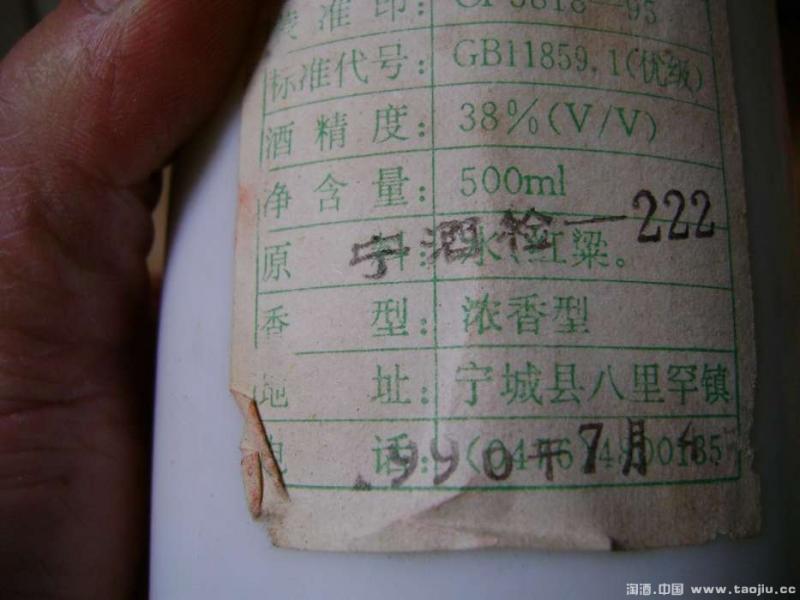 准印: GF3818-95
标准代号: GB11859.1(优级)
酒精度: 38%(V/V)
净含量: 500ml
宁酒检-222
原料: 水、红粱。
香型: 浓香型
地址: 宁城县八里罕镇
电话: (0476)4800185
990年7月
淘酒.中国 www.taojiu.cc